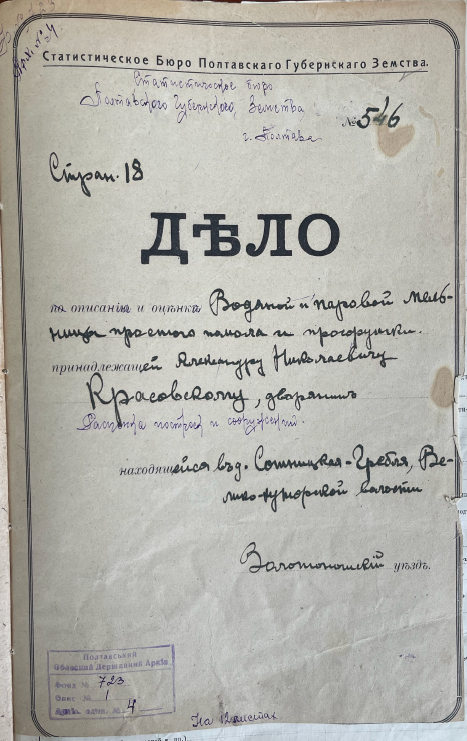 Арх. № 4.
Статистическое Бюро Полтавскаго Губернскаго Земства.
Статистическое бюро
Полтавского Губернского Земства
г. Полтава
№ 546
Стран. 18
ДѢЛО
по описанію и оцѣнкѣ Водяной и паровой мель-
ницы простого помола и
принадлежащей Александру Николаевичу
Красовскому, дворянин
построек и сооружений.
находящейся въ д. Сотницкая-Гребля, Ве-
лико-хуторской волости
Золотоношскій уѣздъ.
Полтавський
Обласний Державний Архів
Фонд № 723
Опис № 1
№ 4
На 12 листах